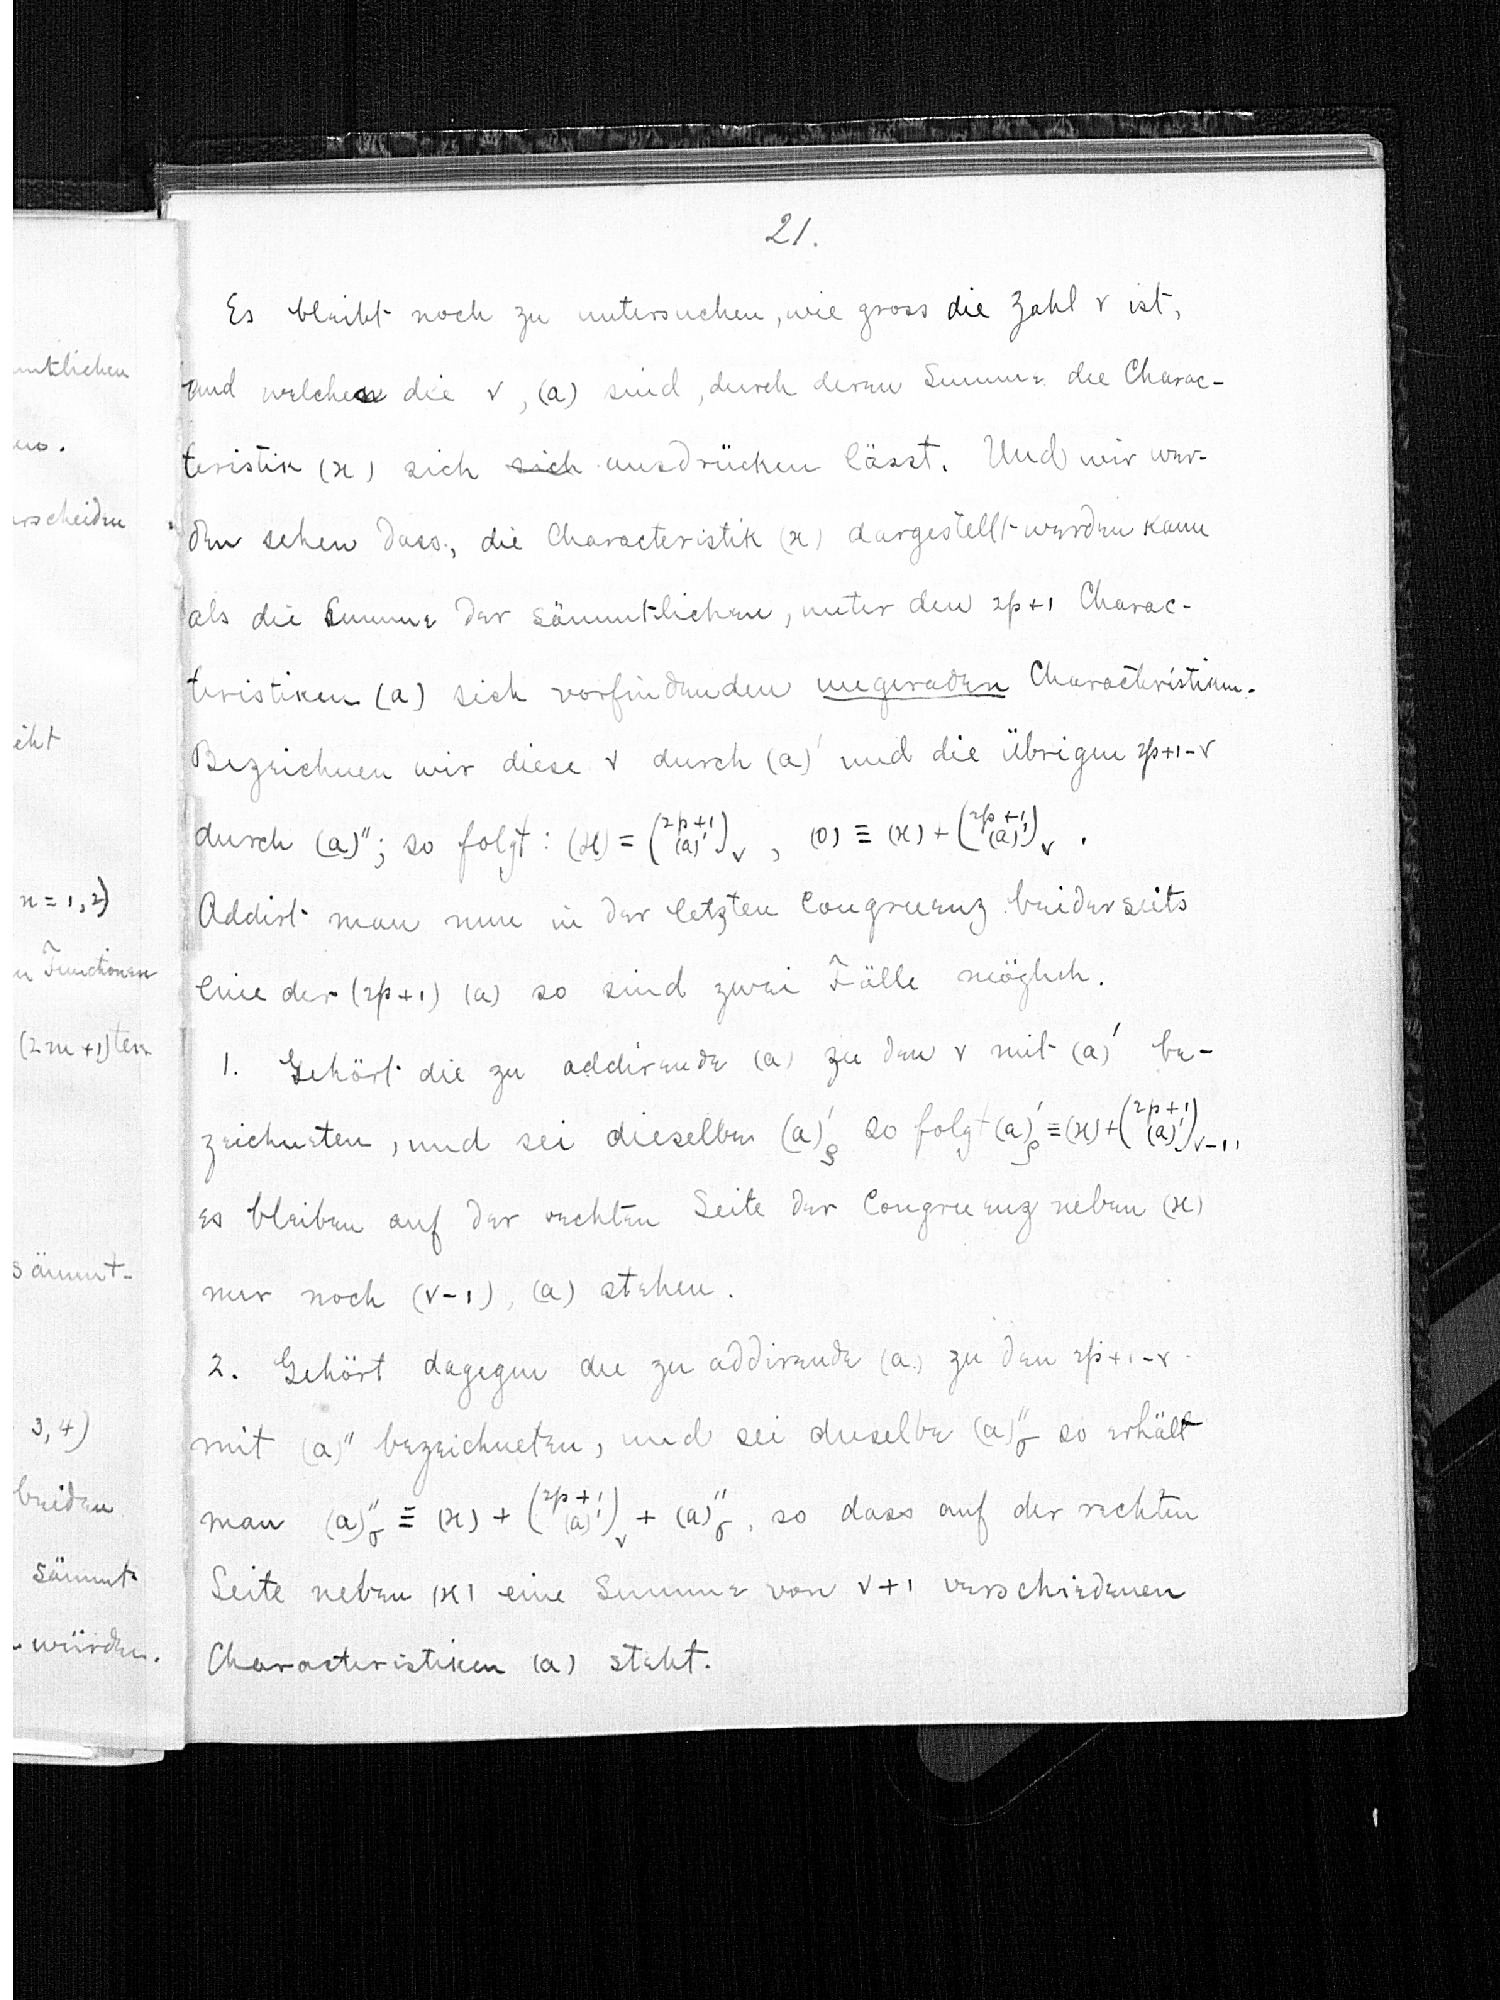 21.
Es bleibt noch zu untersuchen, wie gross die Zahl ν ist,
und welches die ν, (a) sind, durch deren Summe die Charac-
teristik (x) sich sich ausdrücken lässt. Und wir wer-
den sehen dass, die Characteristik (x) dargestellt werden kann
als die Summe der sämmtlichen, unter den 2p+1 Charac-
teristiken (a) sich vorfindenden ungeraden Characteristiken.
Bezeichnen wir diese ν durch (a)' und die übrigen 2p+1-ν
durch (a)''; so folgt: (x) = (2p+1 (a)')ν, (0) ≡ (x) + (2p+1 (a)')ν.
Addirt man nun in der letzten Congruenz beiderseits
eine der (2p+1) (a) so sind zwei Fälle möglich.
1. Gehört die zu addirende (a) zu den ν mit (a)' be-
zeichneten, und sei dieselbe (a)'ρ so folgt (a)'ρ ≡ (x) + (2p+1 (a)')ν-1,
es bleiben auf der rechten Seite der Congruenz neben (x)
nur noch (ν-1), (a) stehen.
2. Gehört dagegen die zu addirende (a) zu den 2p+1-ν
mit (a)'' bezeichneten, und sei dieselbe (a)''σ so erhält
man (a)''σ ≡ (x) + (2p+1 (a)')ν + (a)''σ, so dass auf der rechten
Seite neben (x) eine Summe von ν+1 verschiedenen
Characteristiken (a) steht.
mtlichen
rscheiden
eht
n=1,2)
n Functionen
(2m+1)ten
sämmt-
3,4)
beiden
sämmt
würden.